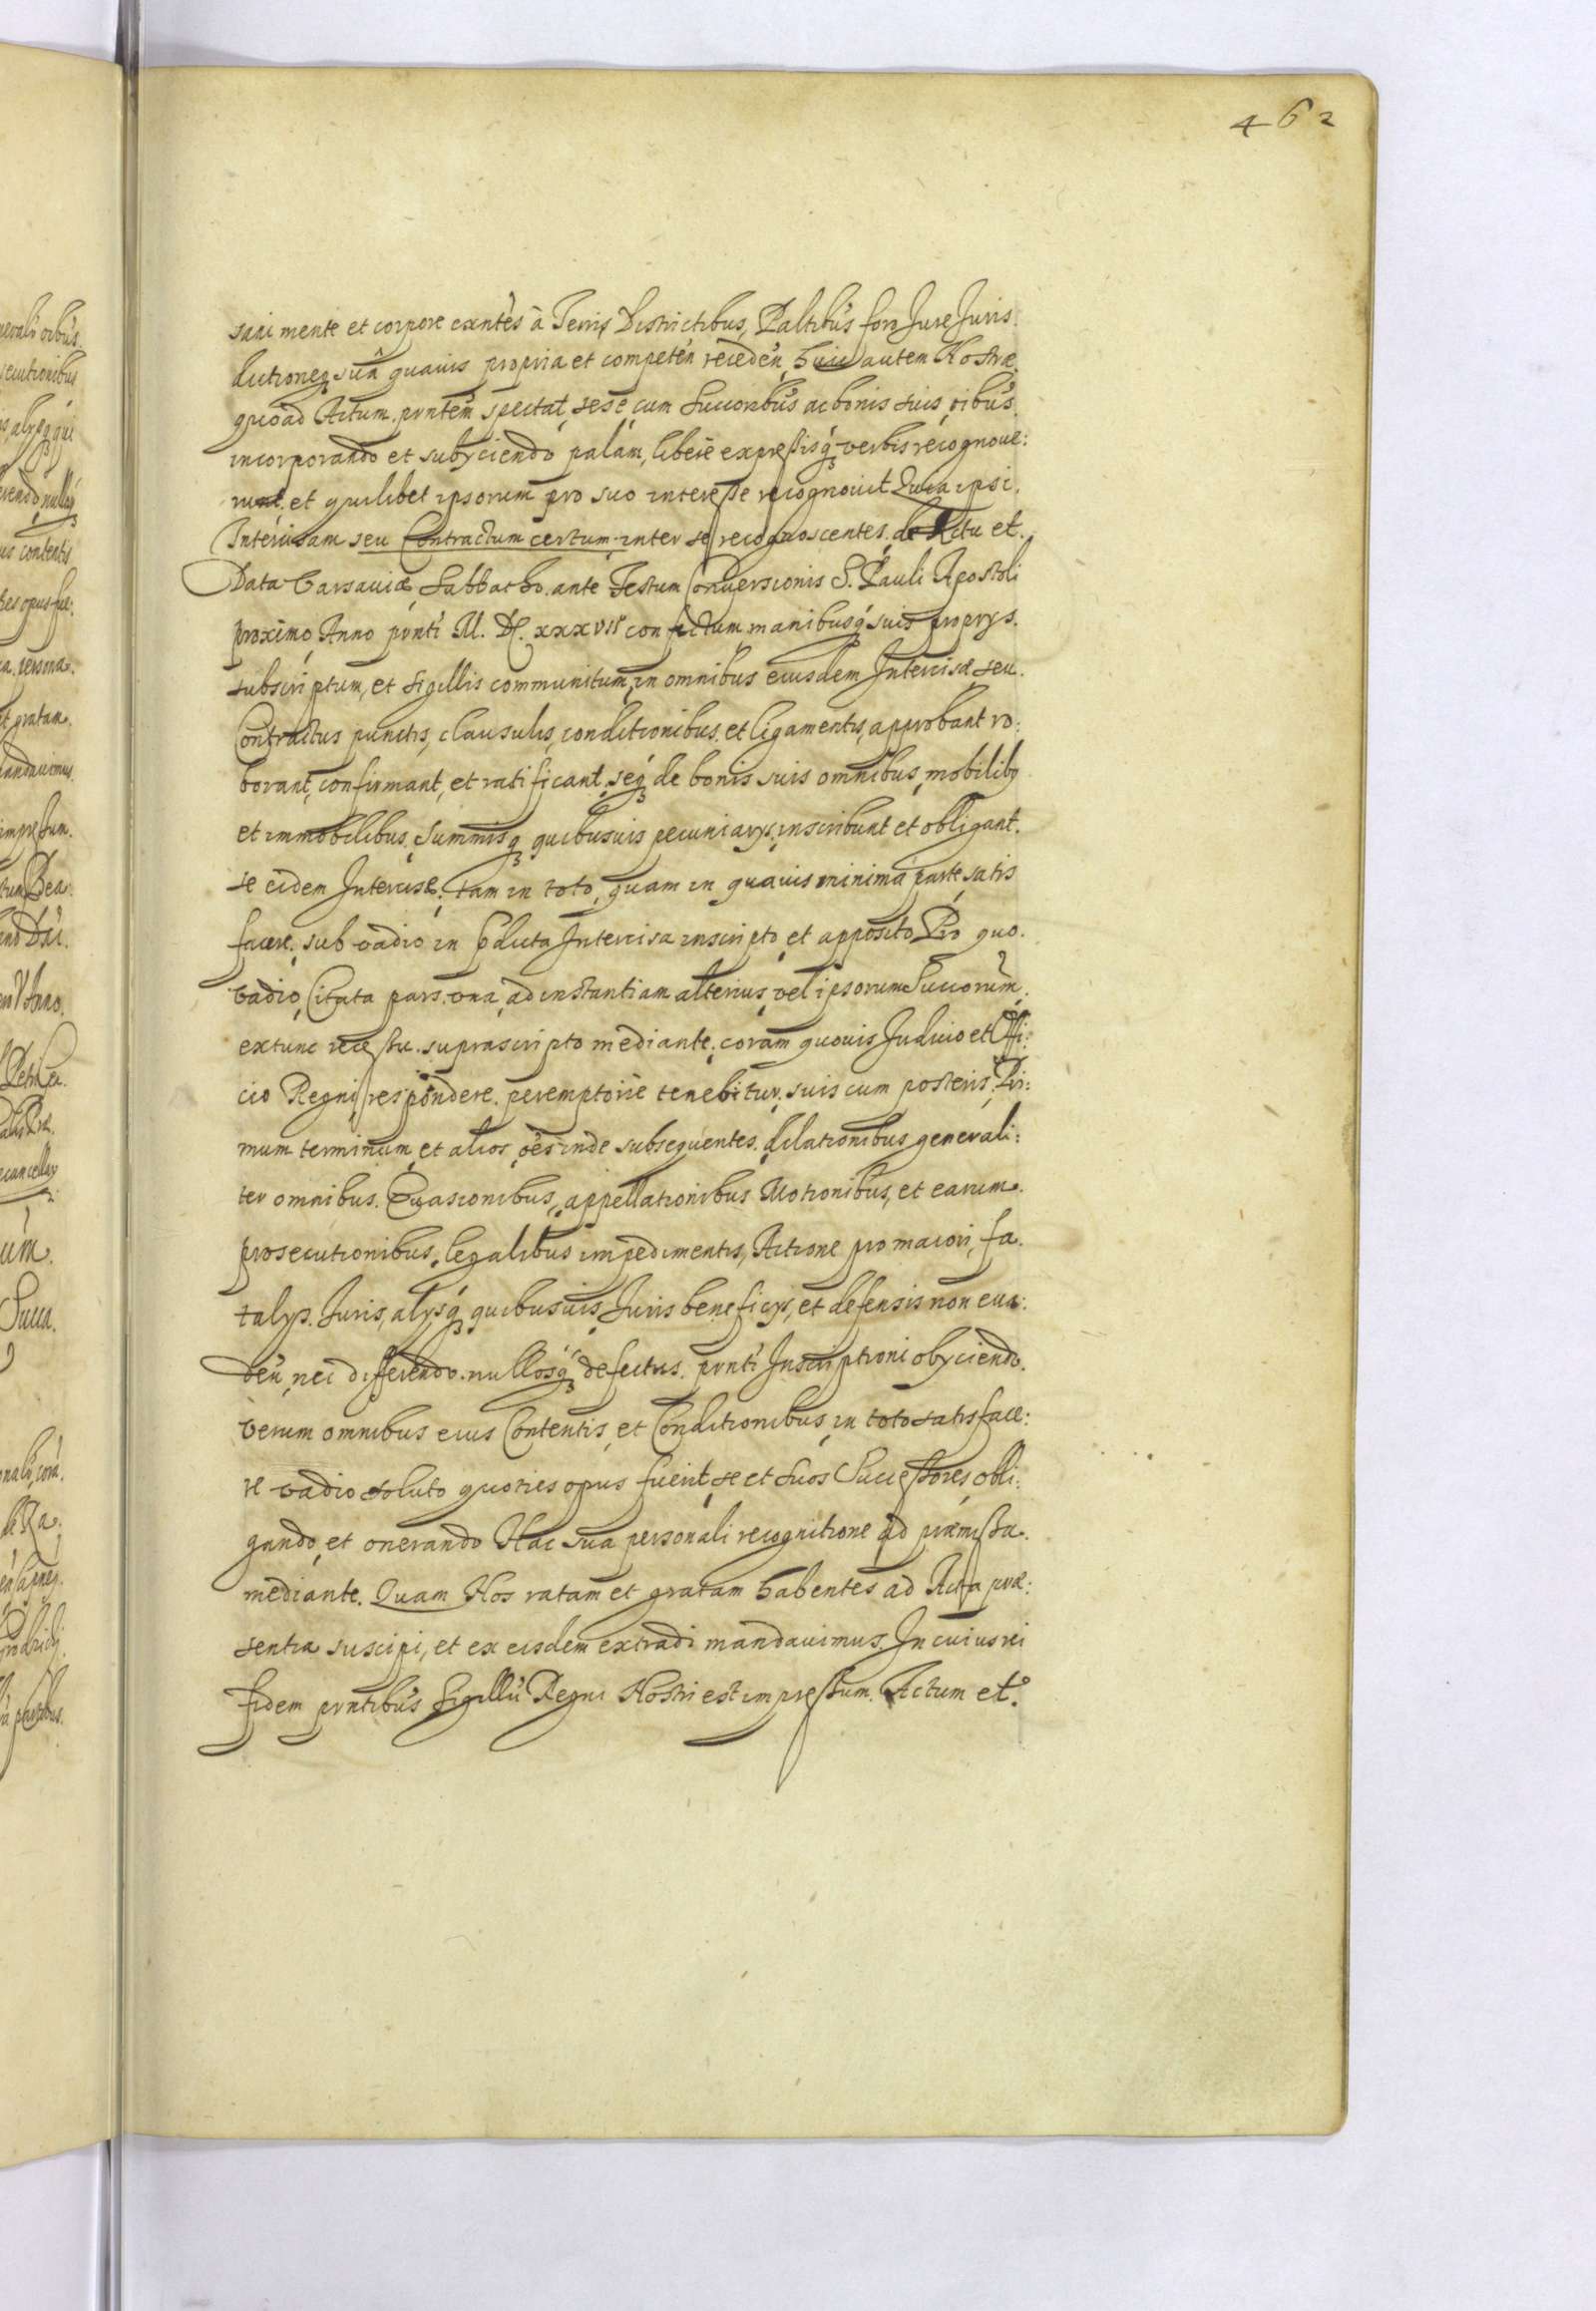 462
sani mente et corpore exntes à Terris Districtibus, Paltibus foro Jure Juris:
dictioneq sua quavis propria et competen receden, huic autem Nostræ
quoad Actum pnntem spectat, sese cum Succoribus ac bonis suis oibus
incorporando et subyciendo palam, libere expressisq verbis recognoue:
runt. et quilibet ipsorum pro suo interesse recognouit Quia ipsi
Intercisam seu Contractum certum inter se recognoscentes, de Actu et
Data Varsaviæ, Sabbatho ante Festum Conversionis S. Pauli Apostoli
proximo, Anno pnti M. DC. xxxvii confectum, manibusq suis proprys
subscriptum, et sigillis communitum, in omnibus eiusdem Intercisæ seu
Contractus punctis, clausulis, conditionibus et ligamentis, approbant ro:
borant, confirmant, et ratificant, seq de bonis suis omnibus, mobilibq
et immobilibus, Summisq quibusuis pecuniarys, inscribunt et obligant
se eidem Intercisæ, tam in toto, quam in quauis minima parte satis
facere, sub vadio in pdicta Intercisa inscripto et apposito Pro quo
vadio, Citata pars una ad instantiam alterius, vel ipsorum Succorum,
extunc recessu suprascripto mediante, coram quouis Judicio et Offi:
cio Regni respondere peremptorie tenebitur, suis cum posteris, Pri:
mum terminum et alios oes inde subsequentes, dilationibus generali:
ter omnibus. Euasionibus, appellationibus Motionibus, et earum
prosecutionibus, legalibus impedimentis, Actione pro maiori, fa
talys Juris, alysq quibusuis Juris beneficys, et defensis non eua:
den, nec differendo nullosq defectus pnti Inscriptioni obyciendo
verum omnibus eius Contentis et Conditionibus in toto satisface:
re vadio soluto quoties opus fuerit, se et suos Successores obli:
gando et onerando Hac sua personali recognitione ad præmissa
mediante. Quam Nos ratam et gratam habentes ad Acta præ:
sentia suscipi, et ex eisdem extradi mandauimus. In cuius rei
fidem pntibus Sigillu Regni Nostri est impressum. Actum et.